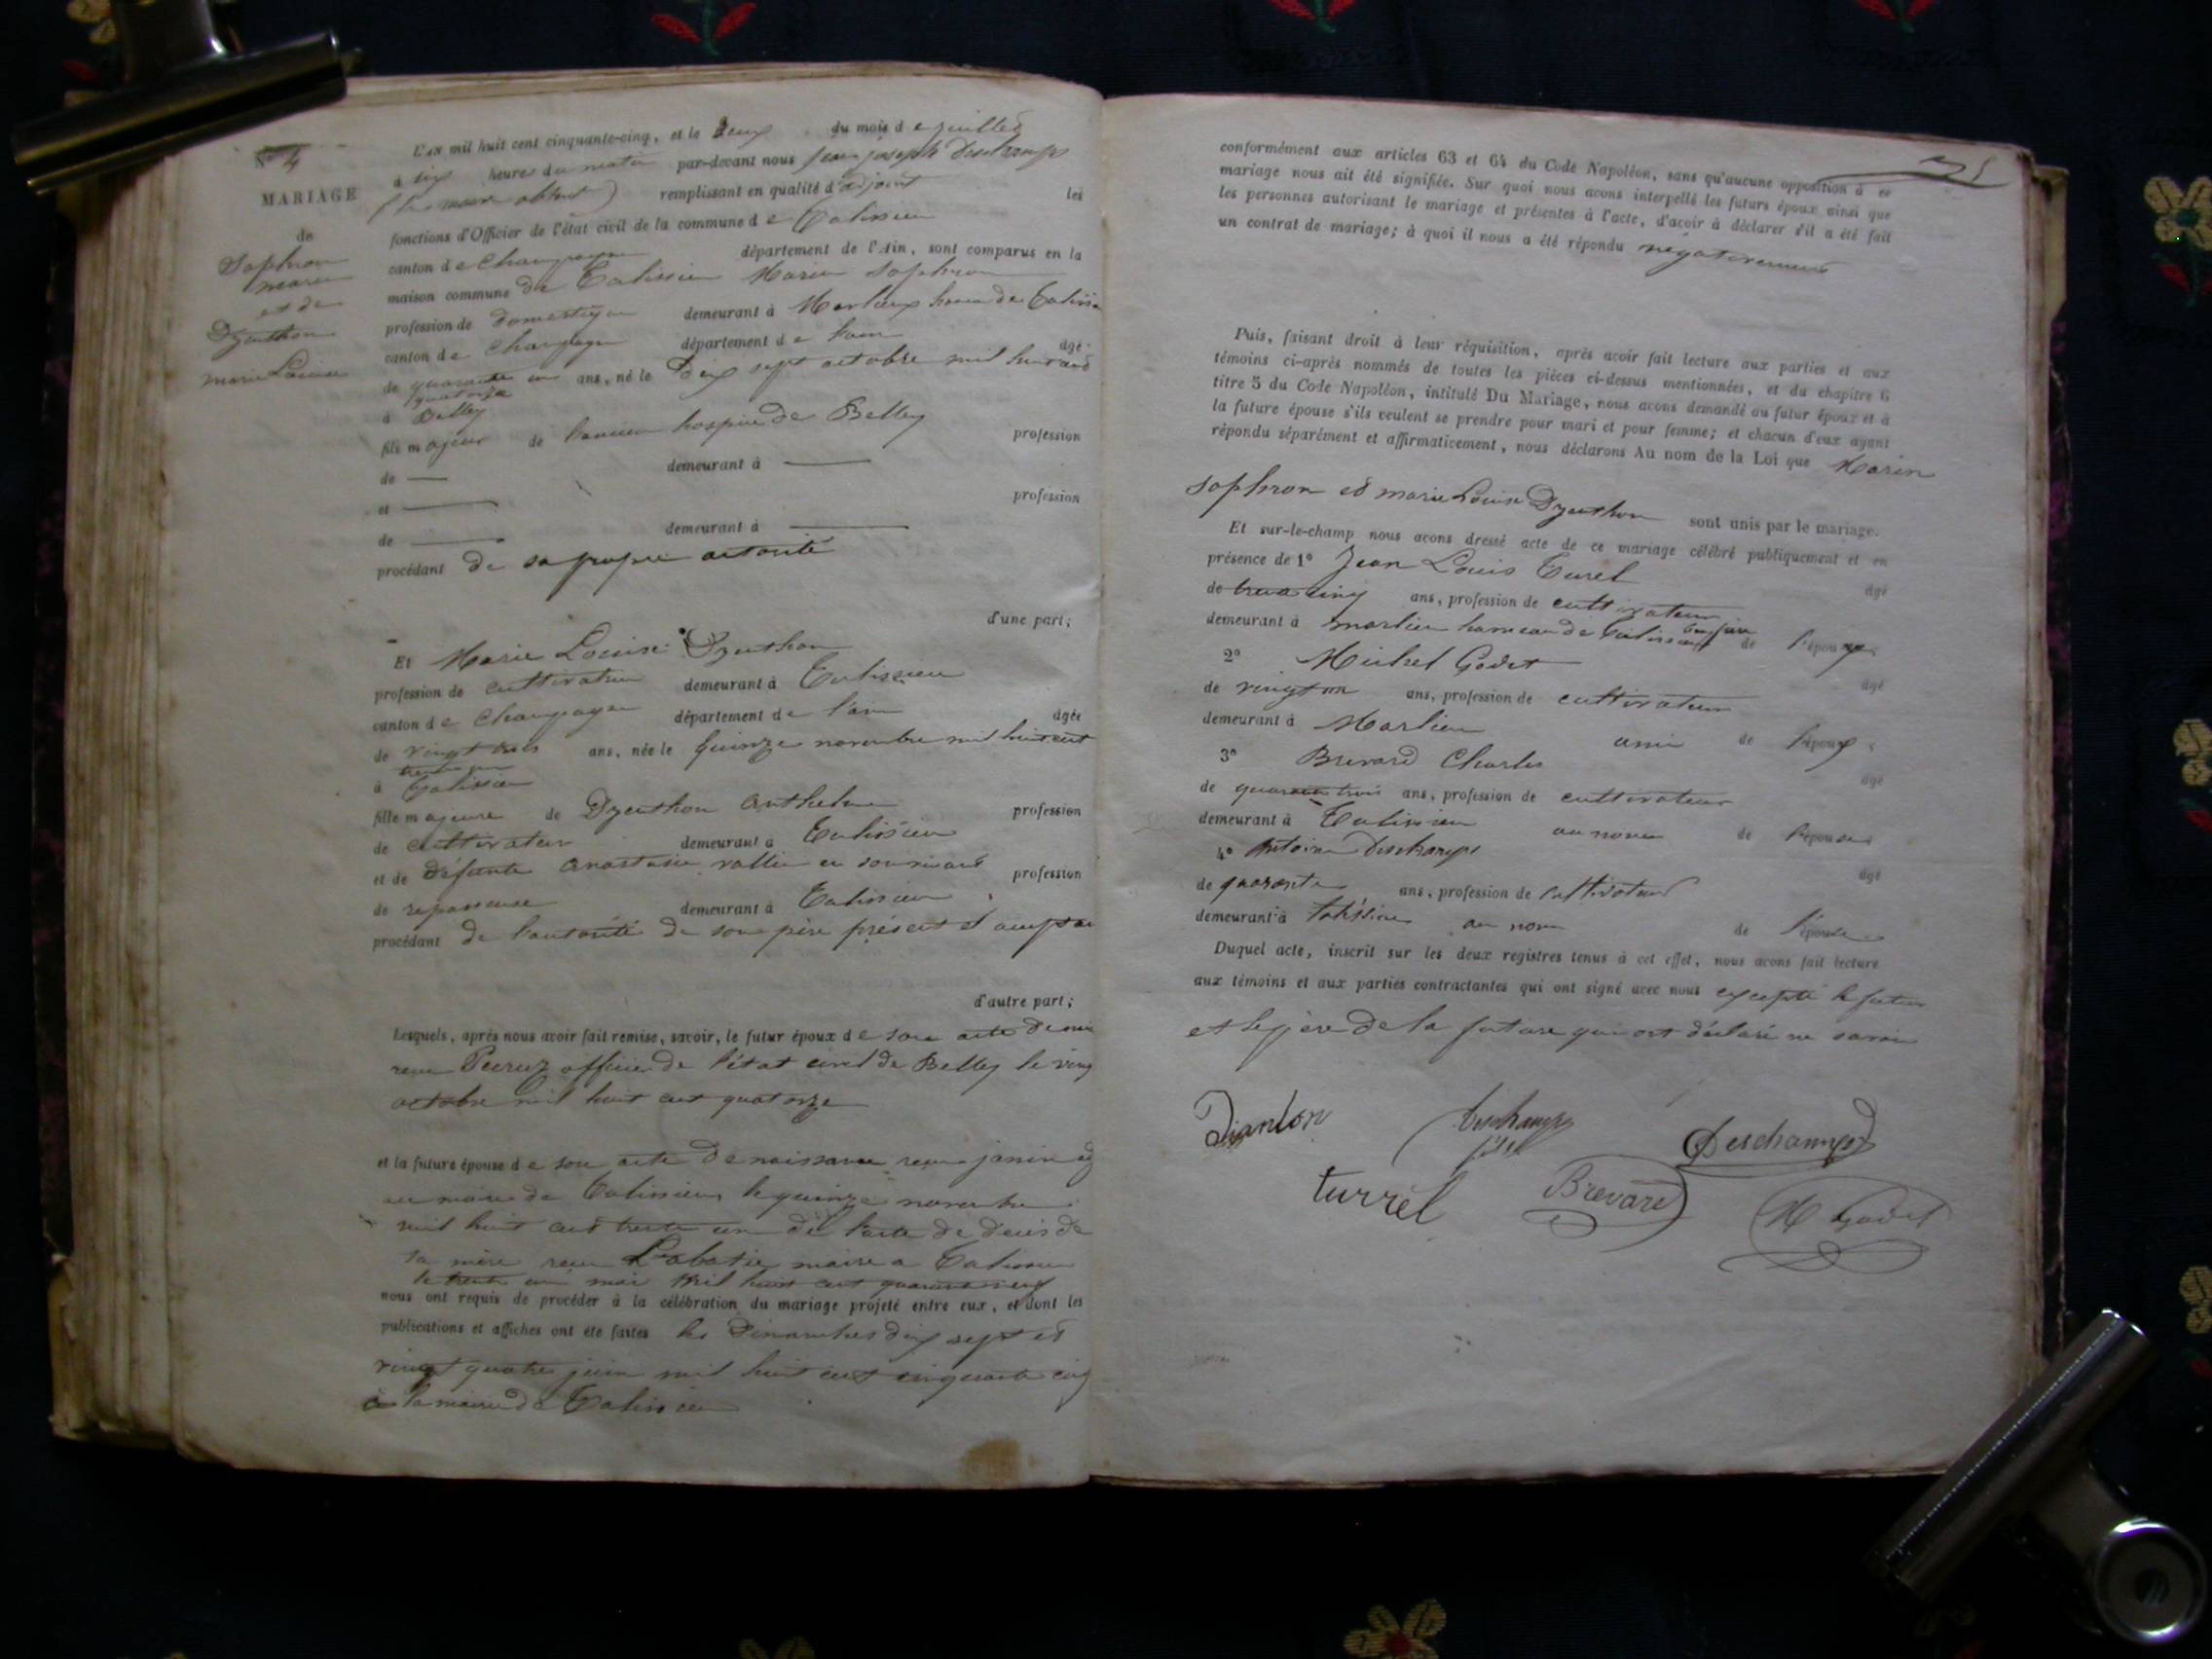 N° 4
MARIAGE
de
Sophron
marin
et de
Dzeuthon
marie Louise
L'AN mil huit cent cinquante-cinq, et le deux du mois de juillet
à six heures du matin par-devant nous jean joseph Deschamps
(le maire absent) remplissant en qualité d'adjoint les
fonctions d'Officier de l'état civil de la commune de Talissieu
canton de Champagne département de l'Ain, sont comparus en la
maison commune de Talissieu Marin Sophron
profession de domestique demeurant à Marlieux hameau de Talissieu
canton de Champagne département de l'ain âgé
de quarante un ans, né le dix sept octobre mil huit cent
quatorze
à Belley
fils majeur de l'ancien hospice de Belley profession
de demeurant à
et profession
de demeurant à
procédant de sa propre autorité
d'une part;
Et Marie Louise Dzeuthon
profession de cultivateur demeurant à Talissieu
canton de Champagne département de l'ain âgée
de vingt trois ans, née le quinze novembre mil huit cent
trente un
à Talissieu
fille majeure de Dzeuthon Anthelme profession
de cultivateur demeurant à Talissieu
et de défunte Anastasie vallin en son vivant profession
de repasseuse demeurant à Talissieu
procédant de l'autorité de son père présent et acceptant
d'autre part;
Lesquels, après nous avoir fait remise, savoir, le futur époux de son acte de nais
reçu officier de l'état civil de Belley le vingt
octobre mil huit cent quatorze
et la future épouse de son acte de naissance reçu janin
maire de Talissieu le quinze novembre
mil huit cent trente un de l'acte de décès de
sa mère reçu Labatie maire a Talissieu
le trente un mai mil huit cent quarante neuf
nous ont requis de procéder à la célébration du mariage projeté entre eux, et dont les
publications et affiches ont été faites les Dimanches dix sept et
vingt quatre juin mil huit cent cinquante cinq
à la mairie de Talissieu
conformément aux articles 63 et 64 du Code Napoléon, sans qu'aucune opposition à ce
mariage nous ait été signifiée. Sur quoi nous avons interpellé les futurs époux ainsi que
les personnes autorisant le mariage et présentes à l'acte, d'avoir à déclarer s'il a été fait
un contrat de mariage; à quoi il nous a été répondu négativement
Puis, faisant droit à leur réquisition, après avoir fait lecture aux parties et aux
témoins ci-après nommés de toutes les pièces ci-dessus mentionnées, et du chapitre 6
titre 5 du Code Napoléon, intitulé Du Mariage, nous avons demandé au futur époux et à
la future épouse s'ils veulent se prendre pour mari et pour femme; et chacun d'eux ayant
répondu séparément et affirmativement, nous déclarons Au nom de la Loi que Marin
sophron et marie Louise Dzeuthon sont unis par le mariage.
Et sur-le-champ nous avons dressé acte de ce mariage célébré publiquement et en
présence de 1° Jean Louis Turel âgé
de trente cinq ans, profession de cultivateur
demeurant à marlieu hameau de Talissieu de l'époux
2° Michel Godet âgé
de vingt un ans, profession de cultivateur
demeurant à Marlieu ami de l'époux
3° Brevard Charles âgé
de quarante trois ans, profession de cultivateur
demeurant à Talissieu au nom de l'épouse
4° Antoine Deschamps âgé
de quarante ans, profession de cultivateur
demeurant à talissieu au nom de l'épouse
Duquel acte, inscrit sur les deux registres tenus à cet effet, nous avons fait lecture
aux témoins et aux parties contractantes qui ont signé avec nous excepté le futur
et le père de la future qui ont déclaré ne savoir
Deschamps
Deschamps
turrel Brevard M Godet